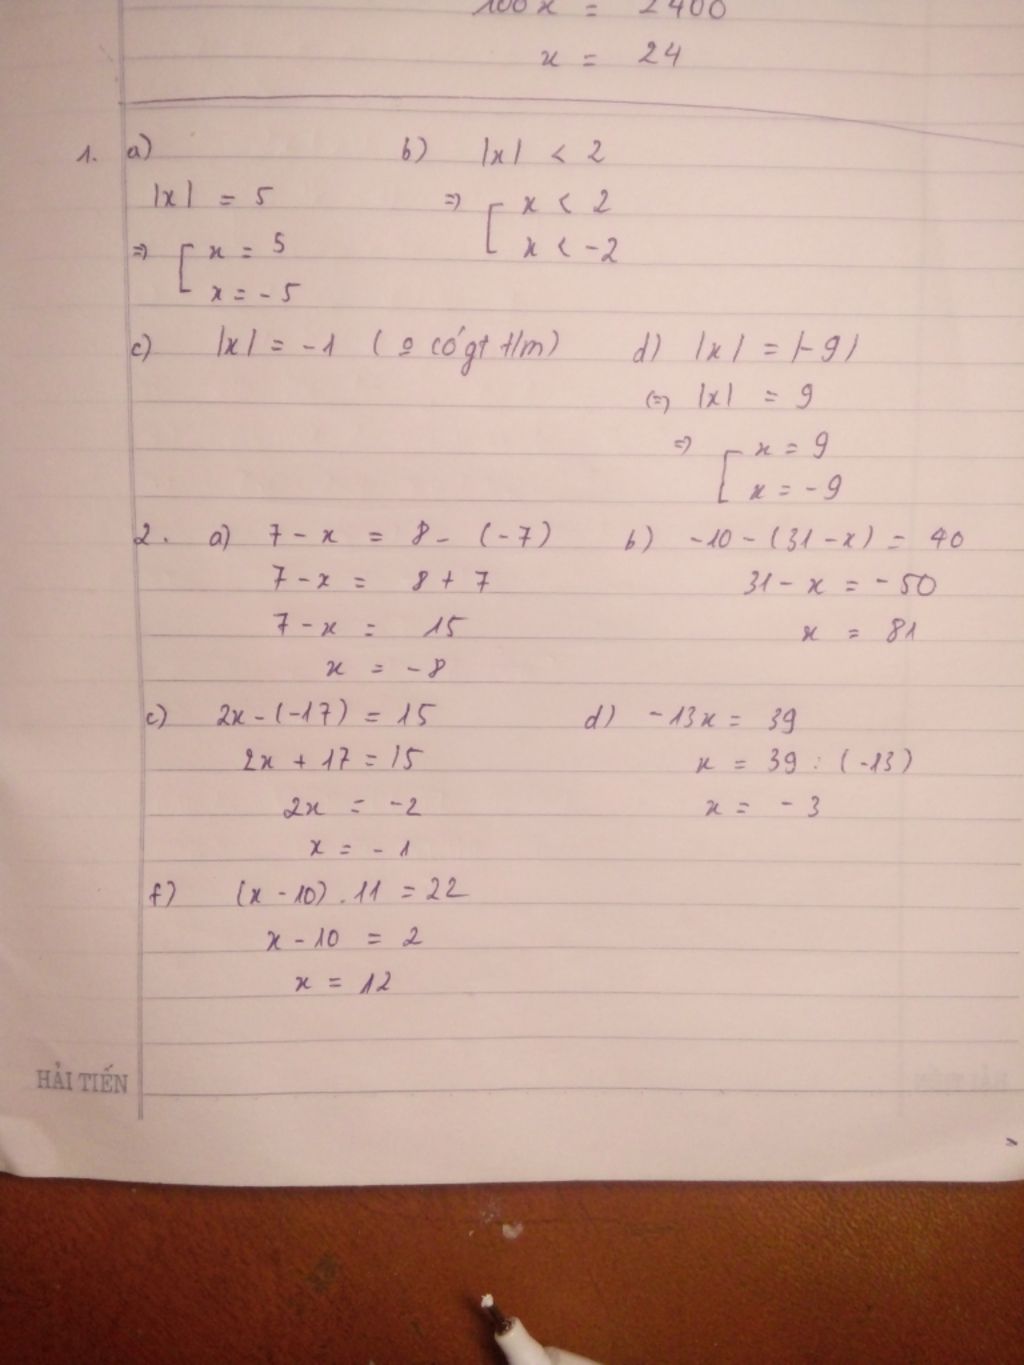 100x = 2400
x = 24
1. a)
|x| = 5
=> [ x = 5
x = -5
b) |x| < 2
=> [ x < 2
x < -2
c) |x| = -1 ( o có gt t/m)
d) |x| = |-9|
(=) |x| = 9
=> [ x = 9
x = -9
2. a) 7 - x = 8 - (-7)
7 - x = 8 + 7
7 - x = 15
x = -8
b) -10 - (31 - x) = 40
31 - x = -50
x = 81
c) 2x - (-17) = 15
2x + 17 = 15
2x = -2
x = -1
d) -13x = 39
x = 39 : (-13)
x = -3
f) (x - 10) . 11 = 22
x - 10 = 2
x = 12
HẢI TIẾN